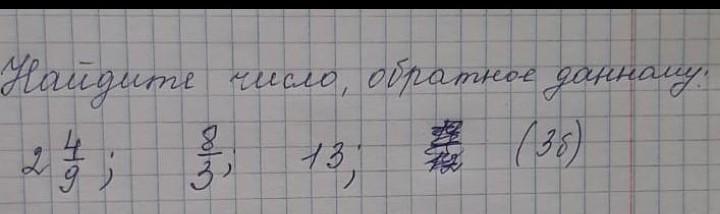 Найдите число, обратное данному:
2 4/9; 8/3; 13; (3б)